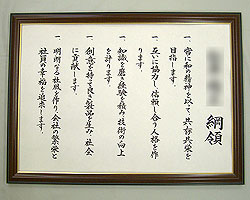 綱領
一、常に和の精神を以て、共存共栄を
目指します。
一、互いに協力し信頼し合う人格を作
ります。
一、知識を磨き経験を積み技術の向上
を計ります。
一、創意を持って良き製品を生み社会
に貢献します。
一、明朗なる社風を作り会社の繁栄と
社員の幸福を追求します。